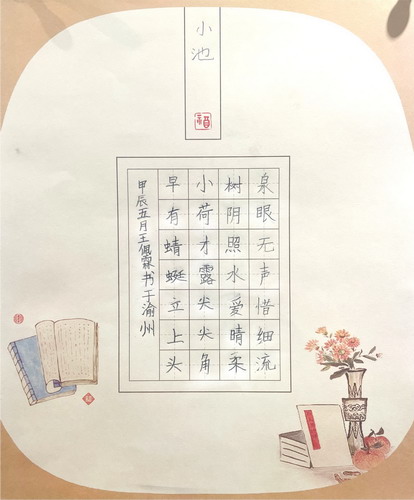 小池
泉眼无声惜细流
树阴照水爱晴柔
小荷才露尖尖角
早有蜻蜓立上头
甲辰五月王佩霖书于渝州